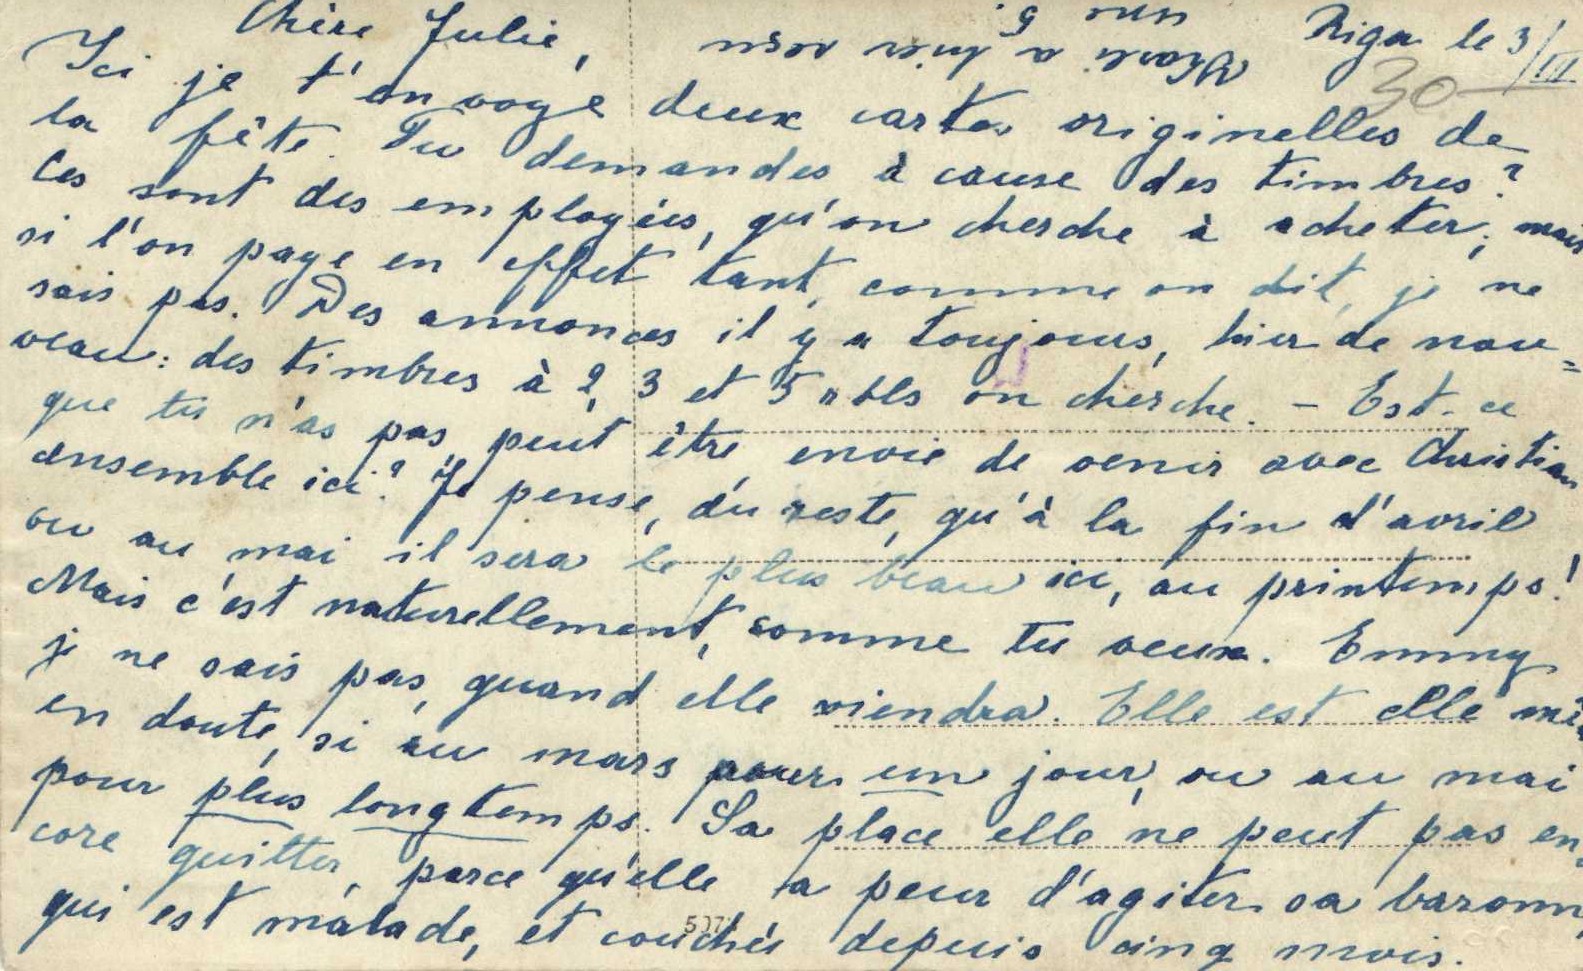 Riga le 3/III
30
Chère Julie,
Ici je t'envoye deux cartes originelles de
la fête. Tu demandes à cause des timbres?
Ces sont des employées, qu'on cherche à acheter; mais
si l'on paye en effet tant, comme on dit, je ne
sais pas. Des annonces il y a toujours, hier de nou=
veau: des timbres à 2, 3 et 5 rbls on cherche. – Est-ce
que tu n'as pas peut être envie de venir avec Christian
ensemble ici? Je pense, du reste, qu'à la fin d'avril
ou au mai il sera le plus beau ici, au printemps!
Mais c'est naturellement, comme tu veux. Emmy
je ne sais pas, quand elle viendra. Elle est elle mê
en doute, si au mars pour un jour, ou au mai
pour plus longtemps. Sa place elle ne peut pas en=
core quitter, parce qu'elle a peur d'agiter sa baronn
qui est malade, et couchée depuis cinq mois.